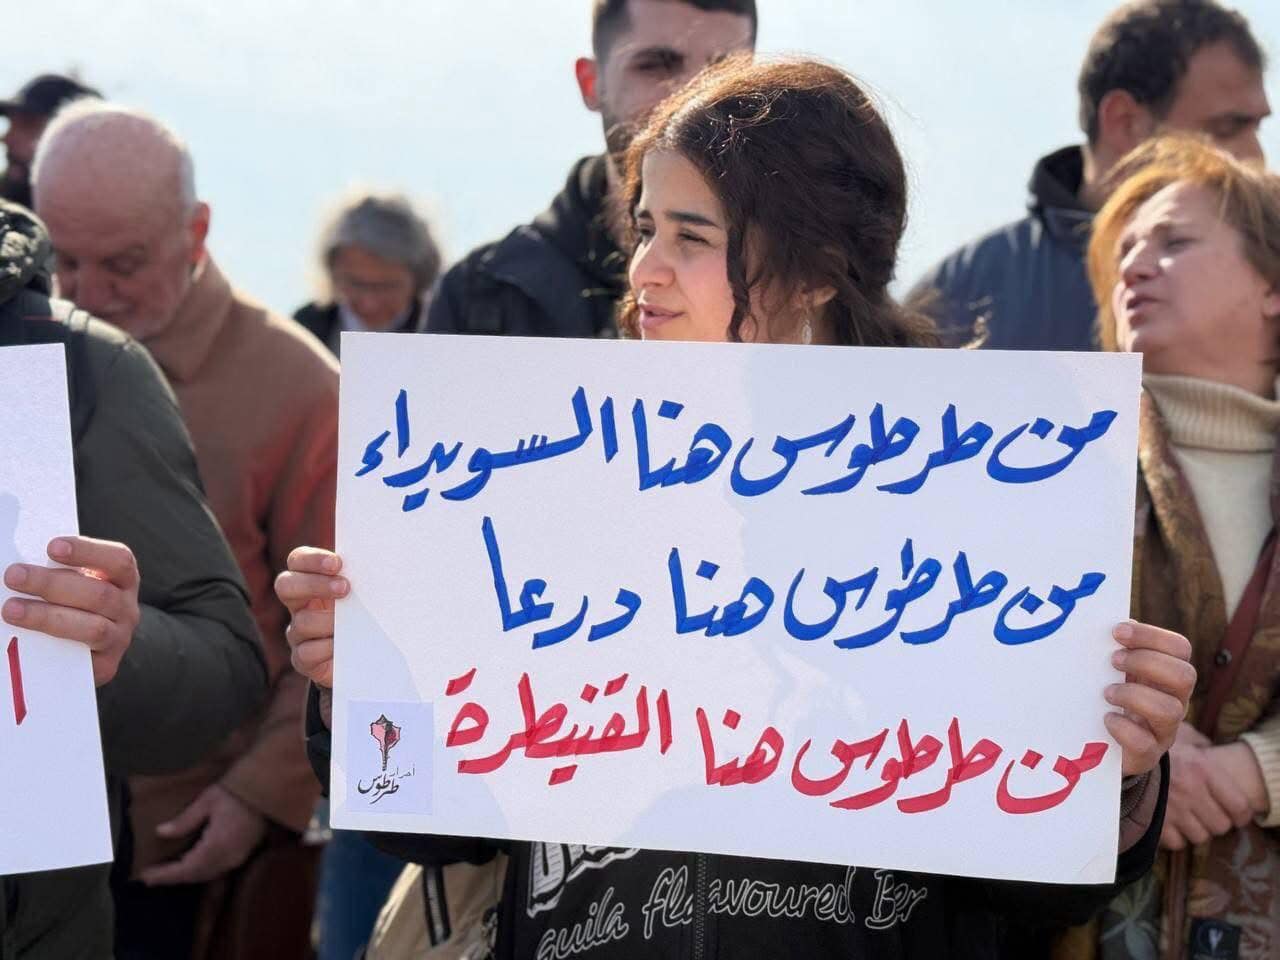 من طرطوس هنا السويداء
من طرطوس هنا درعا
من طرطوس هنا القنيطرة
أحرار
طرطوس
uila flavoured Ber
ا